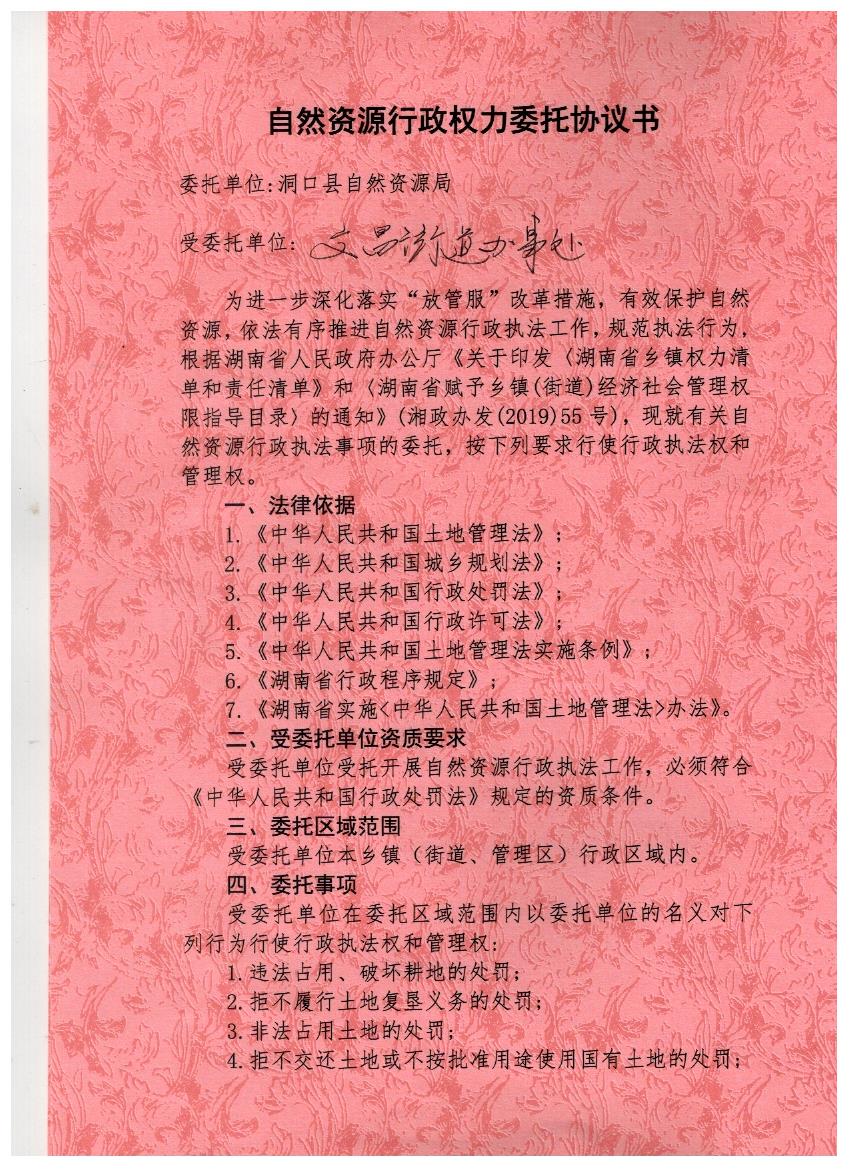 自然资源行政权力委托协议书
委托单位:洞口县自然资源局
受委托单位: 文昌街道办事处
为进一步深化落实“放管服”改革措施，有效保护自然
资源，依法有序推进自然资源行政执法工作，规范执法行为，
根据湖南省人民政府办公厅《关于印发〈湖南省乡镇权力清
单和责任清单》和〈湖南省赋予乡镇(街道)经济社会管理权
限指导目录〉的通知》(湘政办发(2019)55 号)，现就有关自
然资源行政执法事项的委托，按下列要求行使行政执法权和
管理权。
一、法律依据
1.《中华人民共和国土地管理法》；
2.《中华人民共和国城乡规划法》；
3.《中华人民共和国行政处罚法》；
4.《中华人民共和国行政许可法》；
5.《中华人民共和国土地管理法实施条例》；
6.《湖南省行政程序规定》；
7.《湖南省实施<中华人民共和国土地管理法>办法》。
二、受委托单位资质要求
受委托单位受托开展自然资源行政执法工作，必须符合
《中华人民共和国行政处罚法》规定的资质条件。
三、委托区域范围
受委托单位本乡镇（街道、管理区）行政区域内。
四、委托事项
受委托单位在委托区域范围内以委托单位的名义对下
列行为行使行政执法权和管理权:
1.违法占用、破坏耕地的处罚；
2.拒不履行土地复垦义务的处罚；
3.非法占用土地的处罚；
4.拒不交还土地或不按批准用途使用国有土地的处罚；